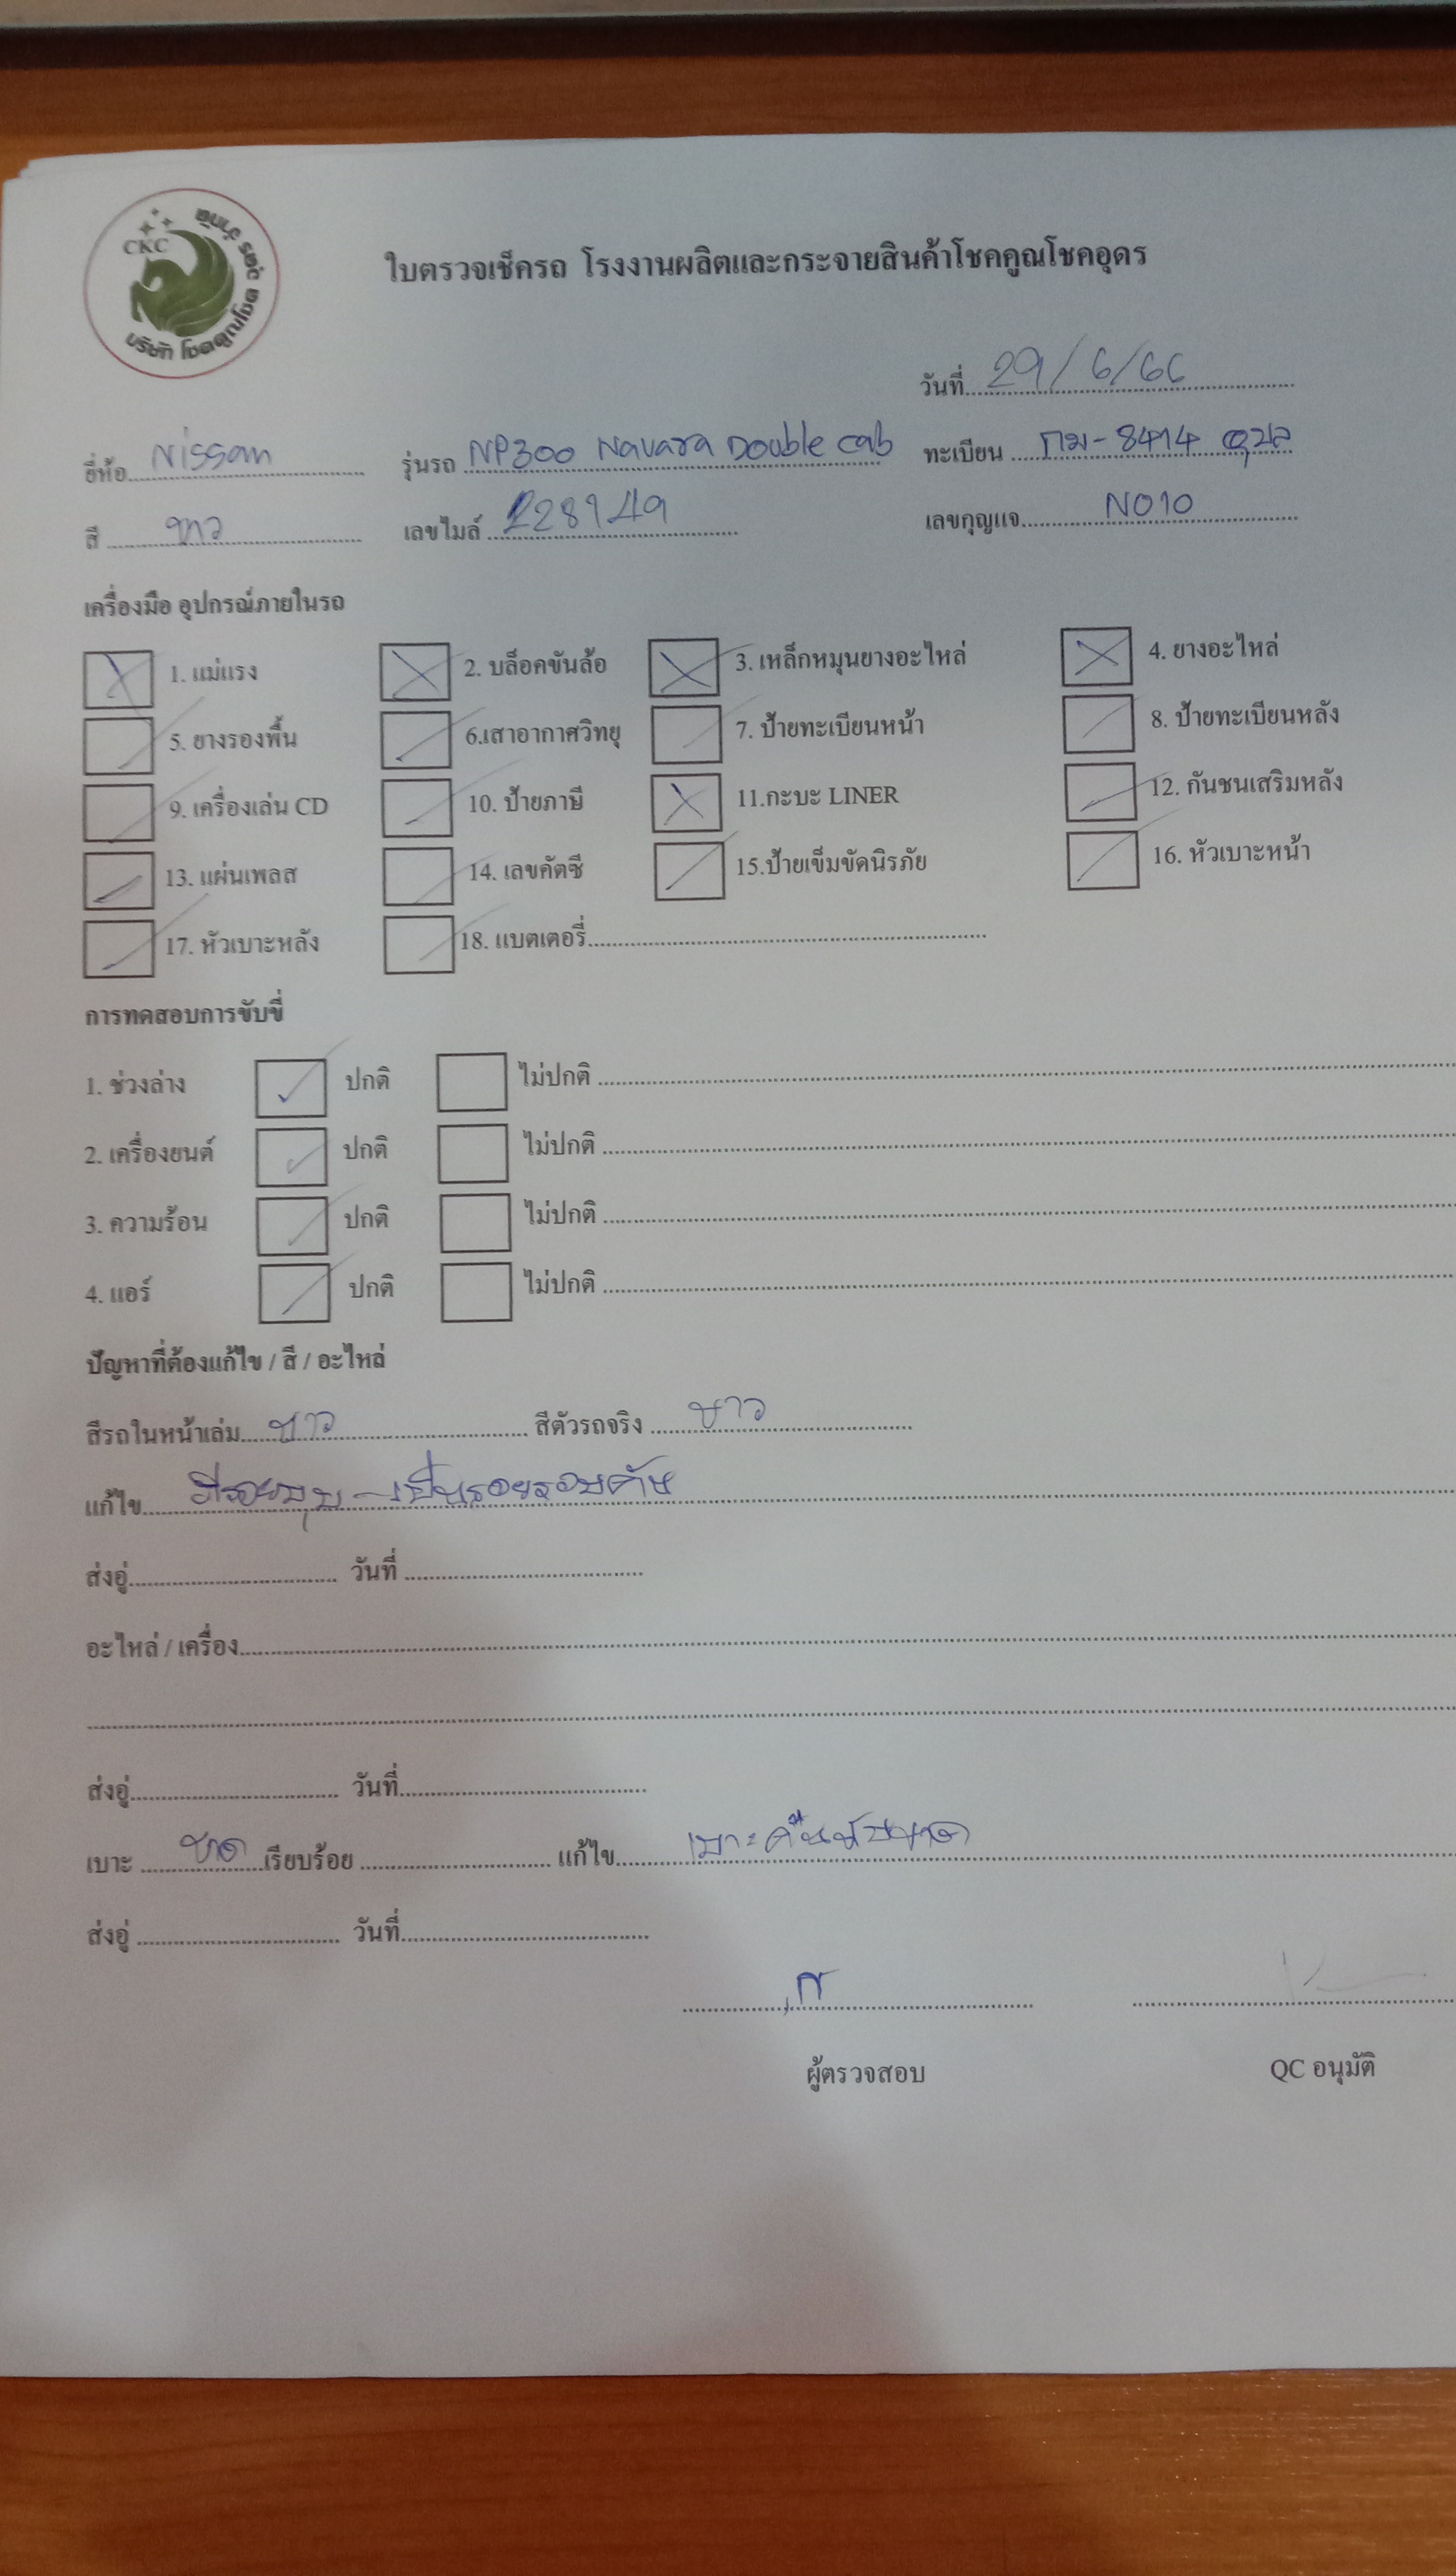 CKC
บริษัท โชคคูณโชค อุดร จำกัด
ใบตรวจเช็ครถ โรงงานผลิตและกระจายสินค้าโชคคูณโชคอุดร
วันที่ 29/6/66
ยี่ห้อ Nissan รุ่นรถ NP300 Navara Double cab ทะเบียน กม-8414 อุบล
สี ขาว เลขไมล์ 228149 เลขกุญแจ N010
เครื่องมือ อุปกรณ์ภายในรถ
1. แม่แรง 2. บล็อคขันล้อ 3. เหล็กหมุนยางอะไหล่ 4. ยางอะไหล่
5. ยางรองพื้น 6.เสาอากาศวิทยุ 7. ป้ายทะเบียนหน้า 8. ป้ายทะเบียนหลัง
9. เครื่องเล่น CD 10. ป้ายภาษี 11.กะบะ LINER 12. กันชนเสริมหลัง
13. แผ่นเพลส 14. เลขคัตซี 15.ป้ายเข็มขัดนิรภัย 16. หัวเบาะหน้า
17. หัวเบาะหลัง 18. แบตเตอรี่
การทดสอบการขับขี่
1. ช่วงล่าง ✓ ปกติ ไม่ปกติ
2. เครื่องยนต์ ✓ ปกติ ไม่ปกติ
3. ความร้อน ✓ ปกติ ไม่ปกติ
4. แอร์ ✓ ปกติ ไม่ปกติ
ปัญหาที่ต้องแก้ไข / สี / อะไหล่
สีรถในหน้าเล่ม ขาว สีตัวรถจริง ขาว
แก้ไข มีรอยบุบ - เป็นรอยรอบคัน
ส่งอู่ วันที่
อะไหล่ / เครื่อง
ส่งอู่ วันที่
เบาะ ขาด เรียบร้อย แก้ไข เบาะคนขับขาด
ส่งอู่ วันที่
ผู้ตรวจสอบ QC อนุมัติ